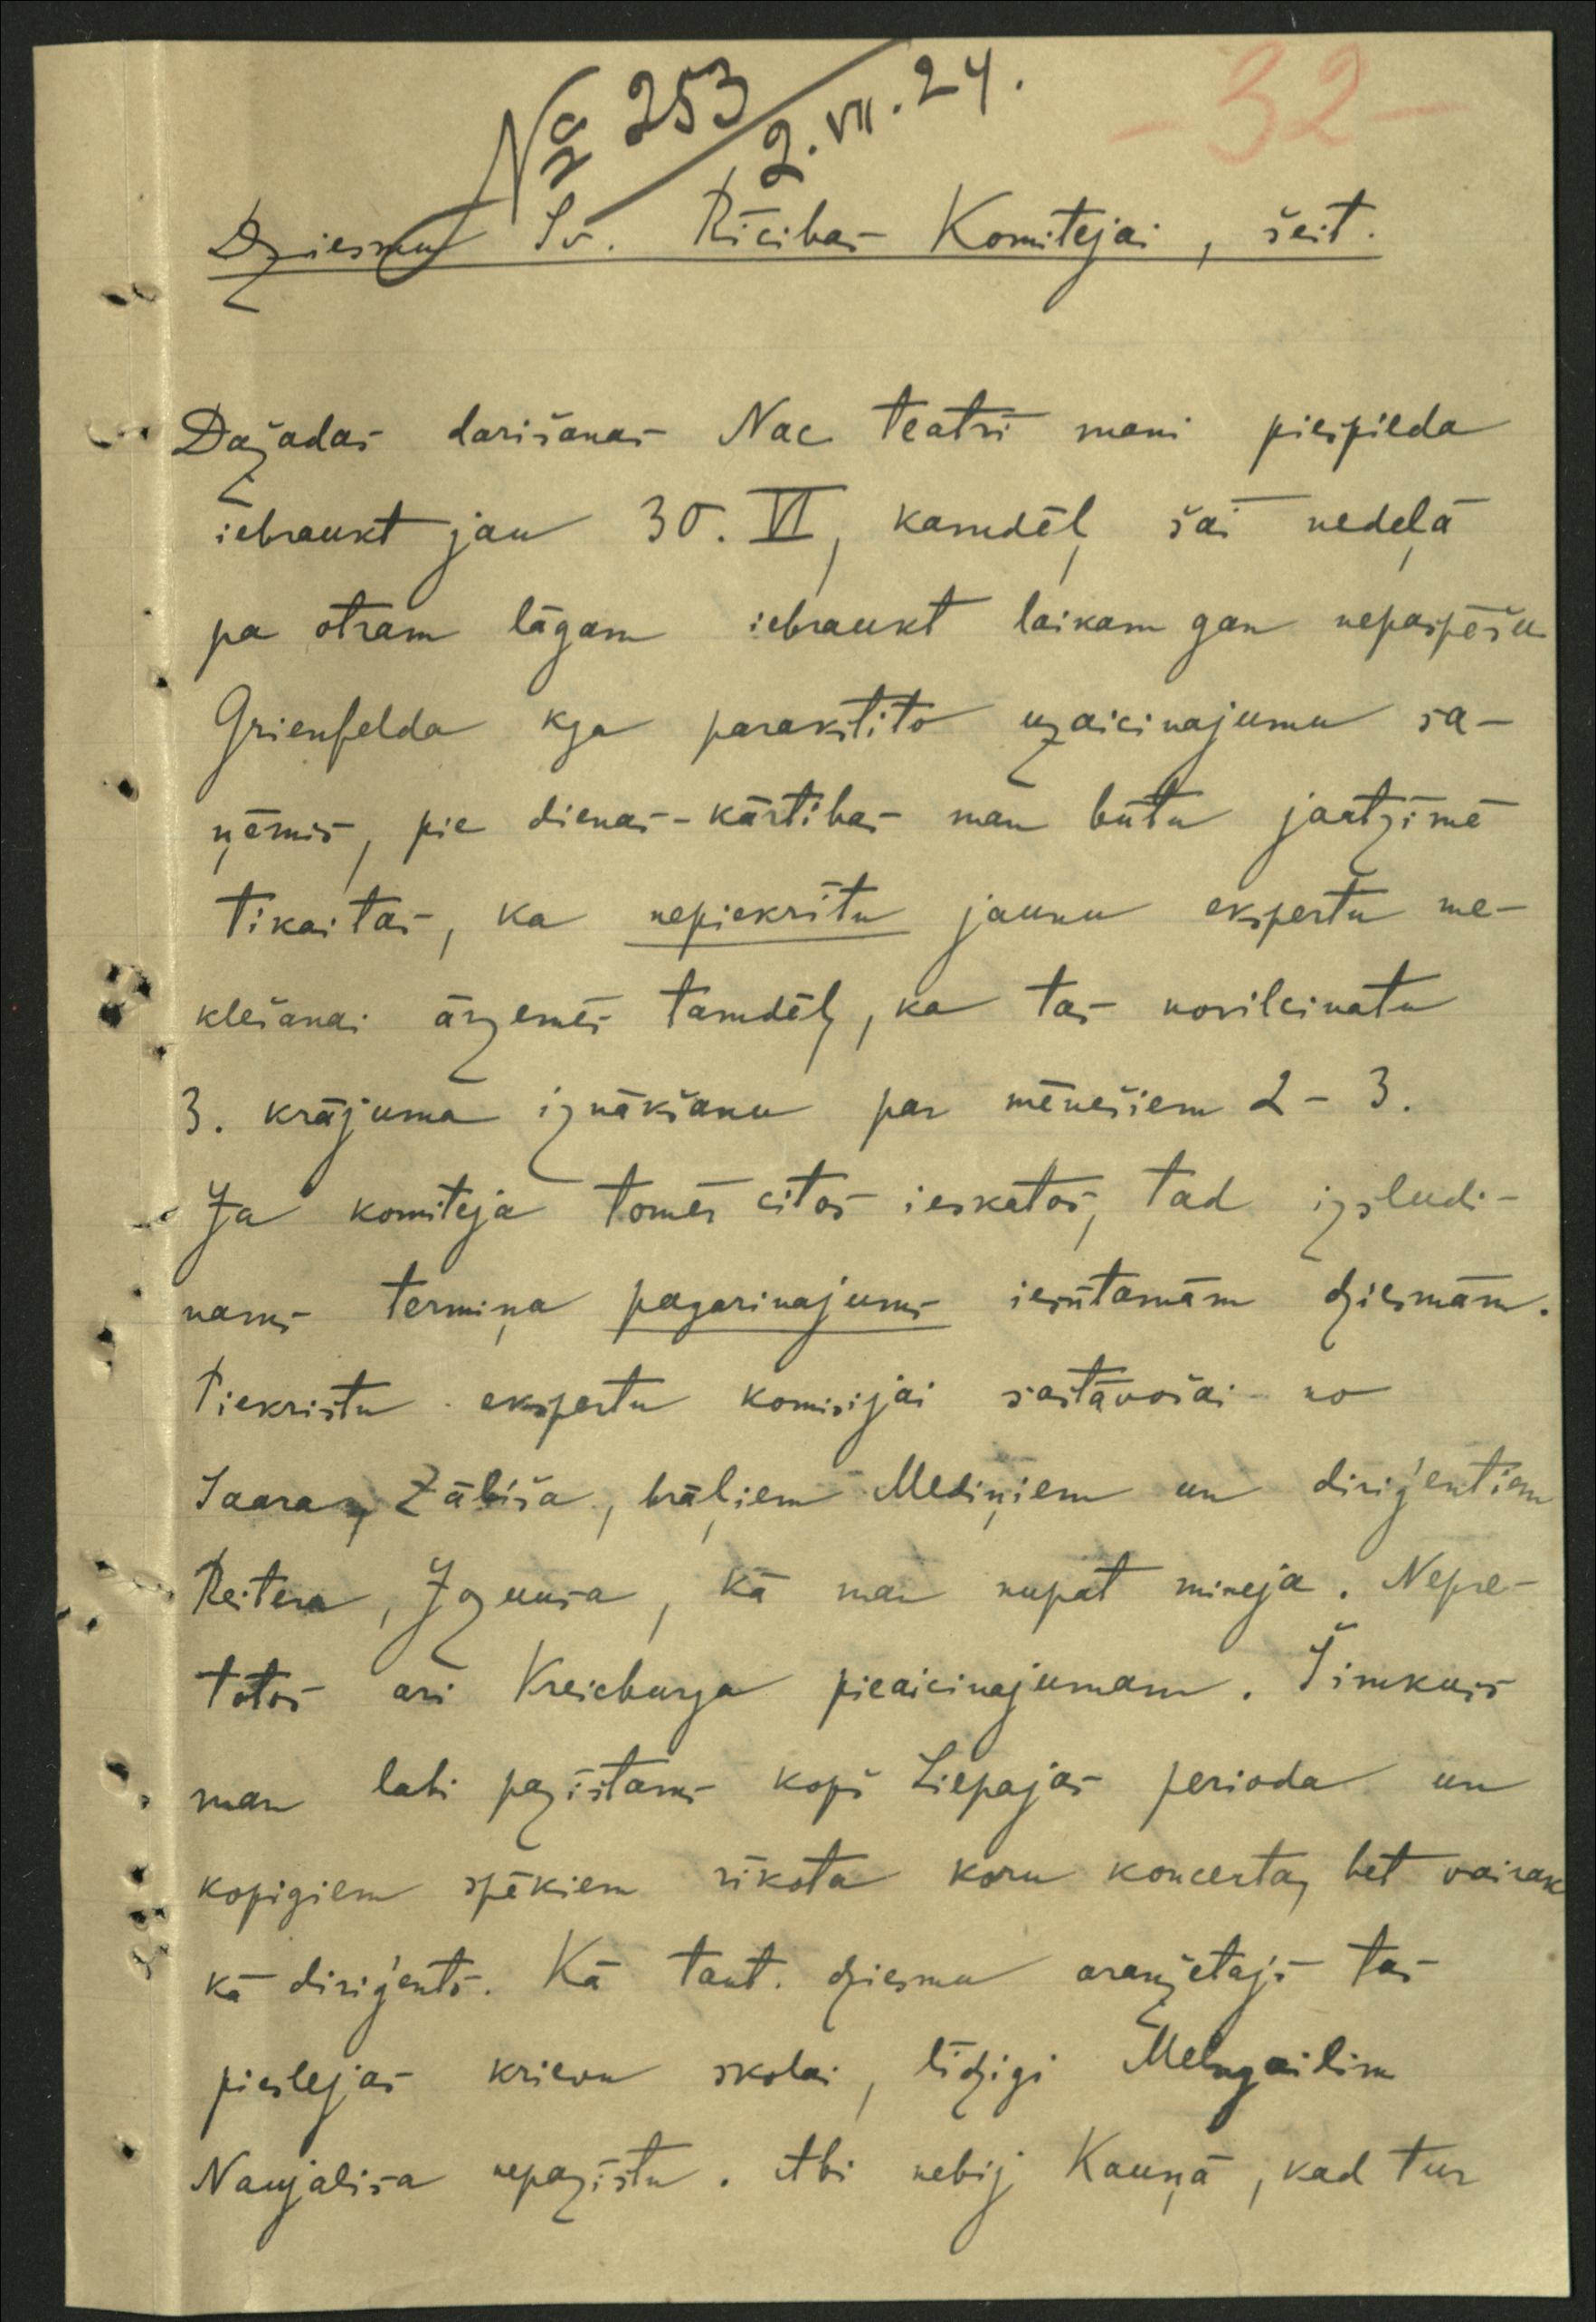 № 253
2.VII.24.
-32-
Dziesmu Sv. Rīcibas Komitejai, šeit.
Dažadas darišanas Nac. teatrī mani piespieda
iebraukt jau 30. VI, kamdēļ šai nedeļā
pa otram lāgam iebraukt laikam gan nepaspēšu
Grienfelda kga parakstito uzaicinajumu sa-
ņēmis, pie dienas-kārtibas man būtu jaatzimē
tikai tas, ka nepiekrītu jaunu ekspertu me-
klešanai ārzemēs tamdēļ, ka tas novilcinatu
3. krājuma iznākšanu par mēnešiem 2-3.
Ja komiteja tomēr citos ieskatos, tad izsludi-
nams termiņa pagarinajums iesūtamām dziesmām.
Piekristu ekspertu komisijai sastāvošai no
Saara, Zālīša, brāļiem Mediņiem un diriģentiem
Reitera, Jozuusa, kā man nupat mineja. Nepre-
totos ari Kreicburga pieaicinajumam. Šimkuss
man labi pazīstams kopš Liepajas perioda un
kopigiem spēkiem rīkota koru koncerta, bet vairak
kā diriģents. Kā taut. dziesmu aranžetajs tas
pieslejas krievu skolai, līdzigi Melngailim
Naujališa nepazīstu. Abi nebij Kauņā, kad tur